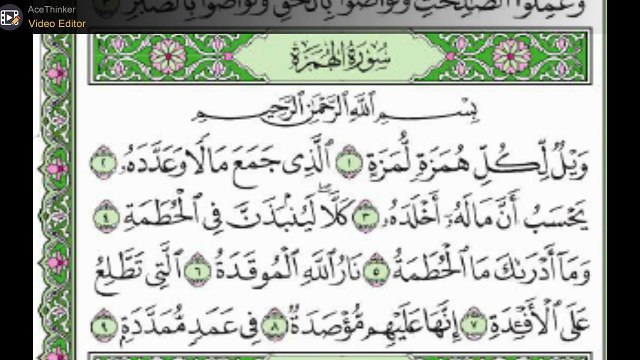 AceThinker
Video Editor
وَعَمِلُوا۟ ٱلصَّـٰلِحَـٰتِ وَتَوَاصَوْا۟ بِٱلْحَقِّ وَتَوَاصَوْا۟ بِٱلصَّبْرِ ٣
سُورَةُ الهُمَزَةِ
بِسْمِ ٱللَّهِ ٱلرَّحْمَـٰنِ ٱلرَّحِيمِ
وَيْلٌ لِّكُلِّ هُمَزَةٍ لُّمَزَةٍ ١ ٱلَّذِى جَمَعَ مَالًا وَعَدَّدَهُۥ ٢
يَحْسَبُ أَنَّ مَالَهُۥٓ أَخْلَدَهُۥ ٣ كَلَّا ۖ لَيُنۢبَذَنَّ فِى ٱلْحُطَمَةِ ٤
وَمَآ أَدْرَىٰكَ مَا ٱلْحُطَمَةُ ٥ نَارُ ٱللَّهِ ٱلْمُوقَدَةُ ٦ ٱلَّتِى تَطَّلِعُ
عَلَى ٱلْأَفْـِٔدَةِ ٧ إِنَّهَا عَلَيْهِم مُّؤْصَدَةٌ ٨ فِى عَمَدٍ مُّمَدَّدَةٍۭ ٩